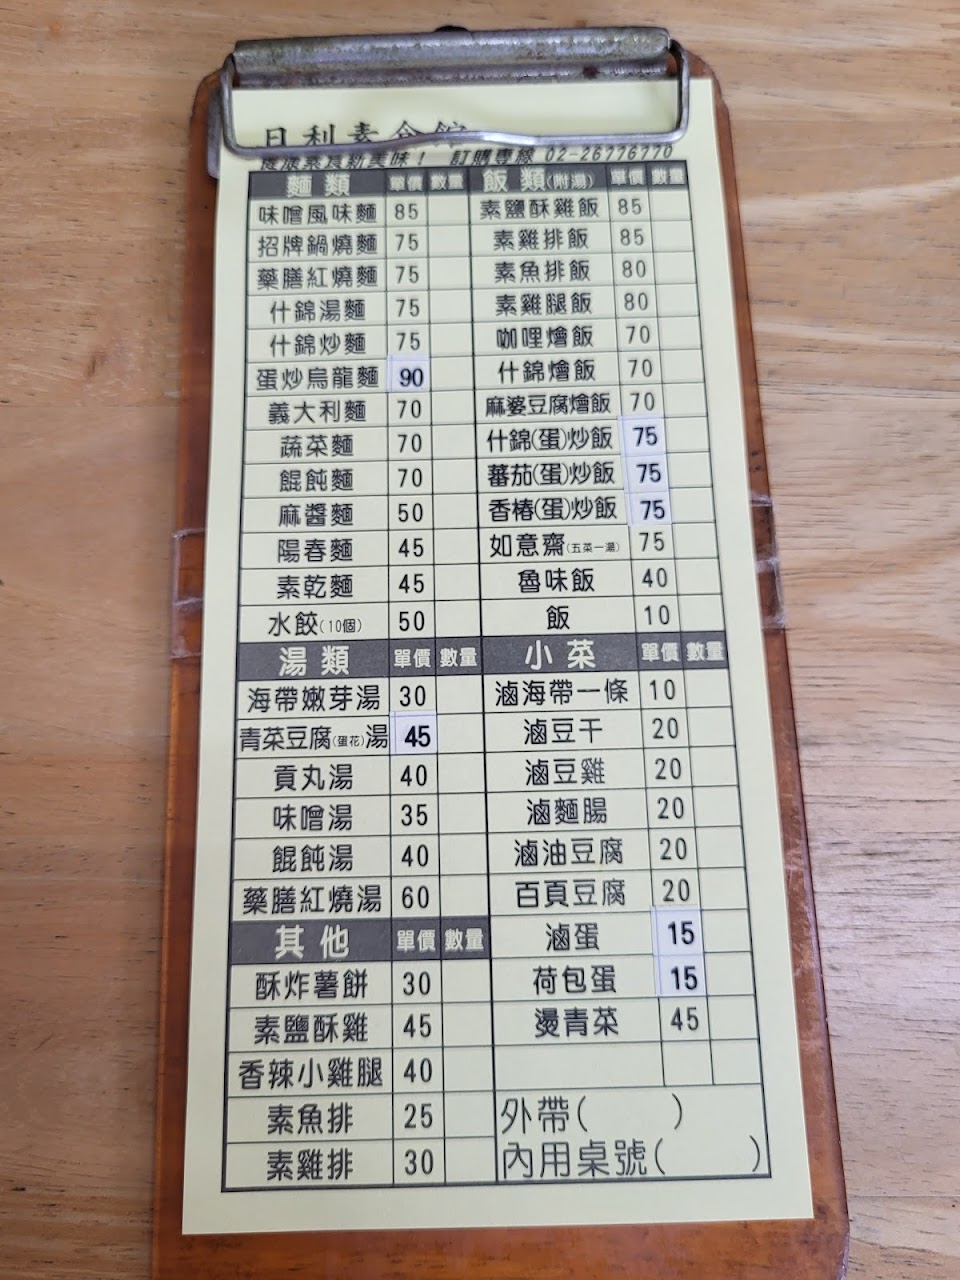 月利素食館
健康素食新美味！ 訂購專線 02-26776770
麵類 單價 數量
味噌風味麵 85
招牌鍋燒麵 75
藥膳紅燒麵 75
什錦湯麵 75
什錦炒麵 75
蛋炒烏龍麵 90
義大利麵 70
蔬菜麵 70
餛飩麵 70
麻醬麵 50
陽春麵 45
素乾麵 45
水餃(10個) 50
湯類 單價 數量
海帶嫩芽湯 30
青菜豆腐(蛋花)湯 45
貢丸湯 40
味噌湯 35
餛飩湯 40
藥膳紅燒湯 60
其他 單價 數量
酥炸薯餅 30
素鹽酥雞 45
香辣小雞腿 40
素魚排 25
素雞排 30
飯類(附湯) 單價 數量
素鹽酥雞飯 85
素雞排飯 85
素魚排飯 80
素雞腿飯 80
咖哩燴飯 70
什錦燴飯 70
麻婆豆腐燴飯 70
什錦(蛋)炒飯 75
蕃茄(蛋)炒飯 75
香椿(蛋)炒飯 75
如意齋(五菜一湯) 75
魯味飯 40
飯 10
小菜 單價 數量
滷海帶一條 10
滷豆干 20
滷豆雞 20
滷麵腸 20
滷油豆腐 20
百頁豆腐 20
滷蛋 15
荷包蛋 15
燙青菜 45
外帶( )
內用桌號( )